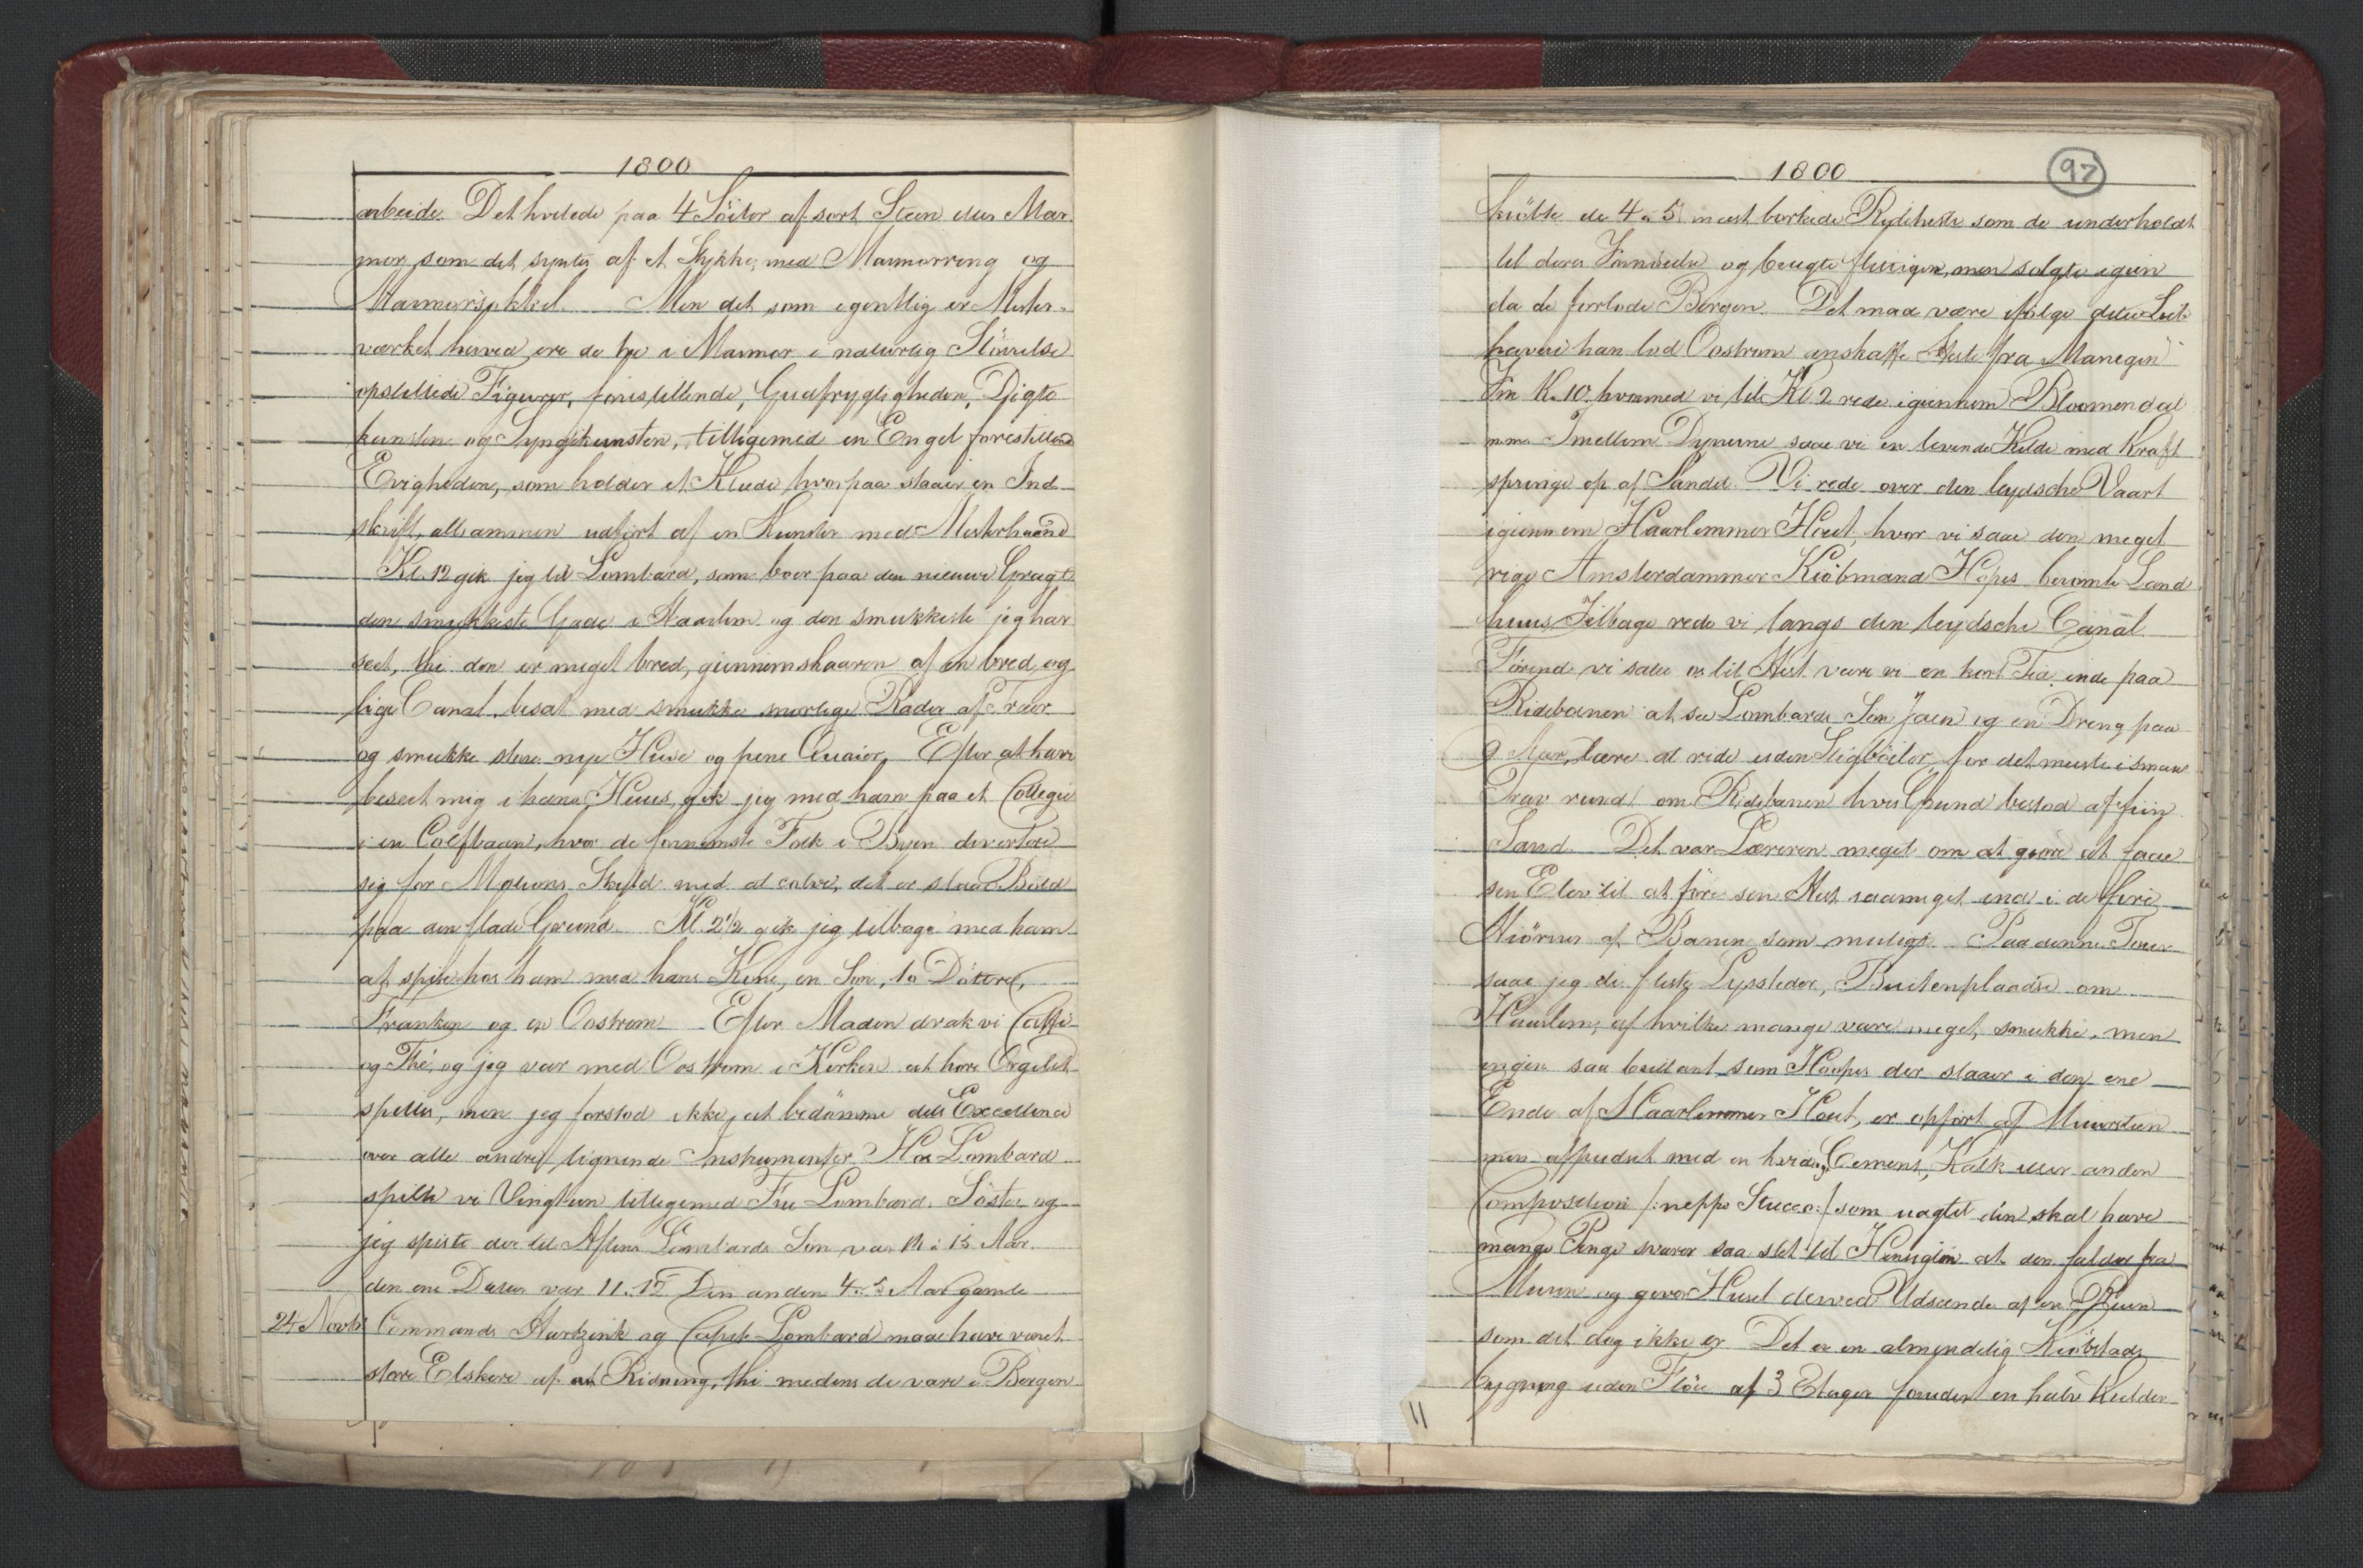 1800
arbeide. Det hvilede paa 4 Söiler af sort Steen eller Mar-
mor, som det syntes af et Stykke, med Marmorring og
Marmorsokkel. Men det som egentlig er Mester-
værket herved, ere de tre i Marmor i naturlig Störrelse
opstillede Figurer, forestillende, Gudfrygtigheden, Digte
kunsten og Syngekunsten, tilligemed en Engel forestillende
Evigheden, som holder et Klæde hvorpaa staaer en Ind-
skrift, altsammen udfört af en Kunstner med Mesterhaand
Kl. 12 gik jeg til Lombard, som boer paa den nieuwe Gragt
den smukkeste Gade i Haarlem og den smukkeste jeg har
seet, thi den er meget bred, giennemskaaren af en bred og
lige Canal, besat med smukke snorlige Rader af Træer
og smukke store nye Huse og pene Quaier. Efter at have
beseet mig i hans Huus, gik jeg med ham paa et Collegie
i en Colfbaan, hvor de fornemste Folk i Byen divertere
sig for Motions Skyld med at colve, det er slaae Bold
paa den flade Grund. Kl. 2½ gik jeg tilbage med ham
at spise hos ham med hans Kone, en Sön, to Döttre,
Franken og en Oostrom. Efter Maden drak vi Caffe
og The, og jeg var med Oostrom i Kirken at höre Orgelet
spilles, men jeg forstod ikke at bedömme dets Excellence
over alle andre lignende Instrumenter. Hos Lombard
spilte vi Vingtun tilligemed Fru Lombards Söster og
jeg spiste der til Aften. Lombards Sön var 14 à 15 Aar
den ene Datter var 11-12 Den anden 4-5 Aar gamle
24 Novbr Commandr Hartzink og Capt Lombard maae have været
store Elskere af at Ridning, thi medens de vare i Bergen
1800
97
kiöbte de 4 à 5 meest bekiendte Rideheste som de underholdt
til deres Fornöielse og brugte flittigen, men solgte igien
da de forlode Bergen. Det maa være ifölge dette Lieb-
haverie han lod Oostrom anskaffe Heste fra Manegen
Fra Kl. 10. hvormed vi til Kl 2 rede igiennem Bloomendal
m.m. Imellem Dynerne saae vi en levende Kilde med Kraft
springe op af Sandet. Vi rede over den leydsche Vaart
igiennem Haarlemmer Hout, hvor vi saae den meget
rige Amsterdammer Kiöbmand Hopes berömte Land
huus. Tilbage rede vi langs den leydsche Canal.
Förend vi satte os til Hest vare vi en kort Tid inde paa
Ridebanen at see Lombards Sön Jan og en Dreng paa
9 Aar, lære at ride uden Stigböiler for det meeste i smaa
Trav rundt om Ridebanen hvis Grund bestod af fiin
Sand. Det var Læreren meget om at giöre at faae
sin Elev til at före sin Hest saameget ind i de fire
Hiörner af Banen som muligt. Paa denne Tour
saae jeg de fleste Lyststeder, Buitenplaadse om
Haarlem, af hvilke mange vare meget, smukke, men
ingen saa brillant som Hoopes der staaer i den ene
Ende af Haarlemmer Hout, er opfört af Muursteen
men afpudset med en hvidag Cement, Kalk eller anden
Composetion /: neppe Stucco :/ som uagtet den skal have
mange Penge svarer saa slet til Hensigten at den falder fra
Muren og giver Huset derved Udseende af en Ruin
som det dog ikke er. Det er en almindelig Kiöbstads
bygning uden Flöie af 3 Etager foruden en halv Kielder
11